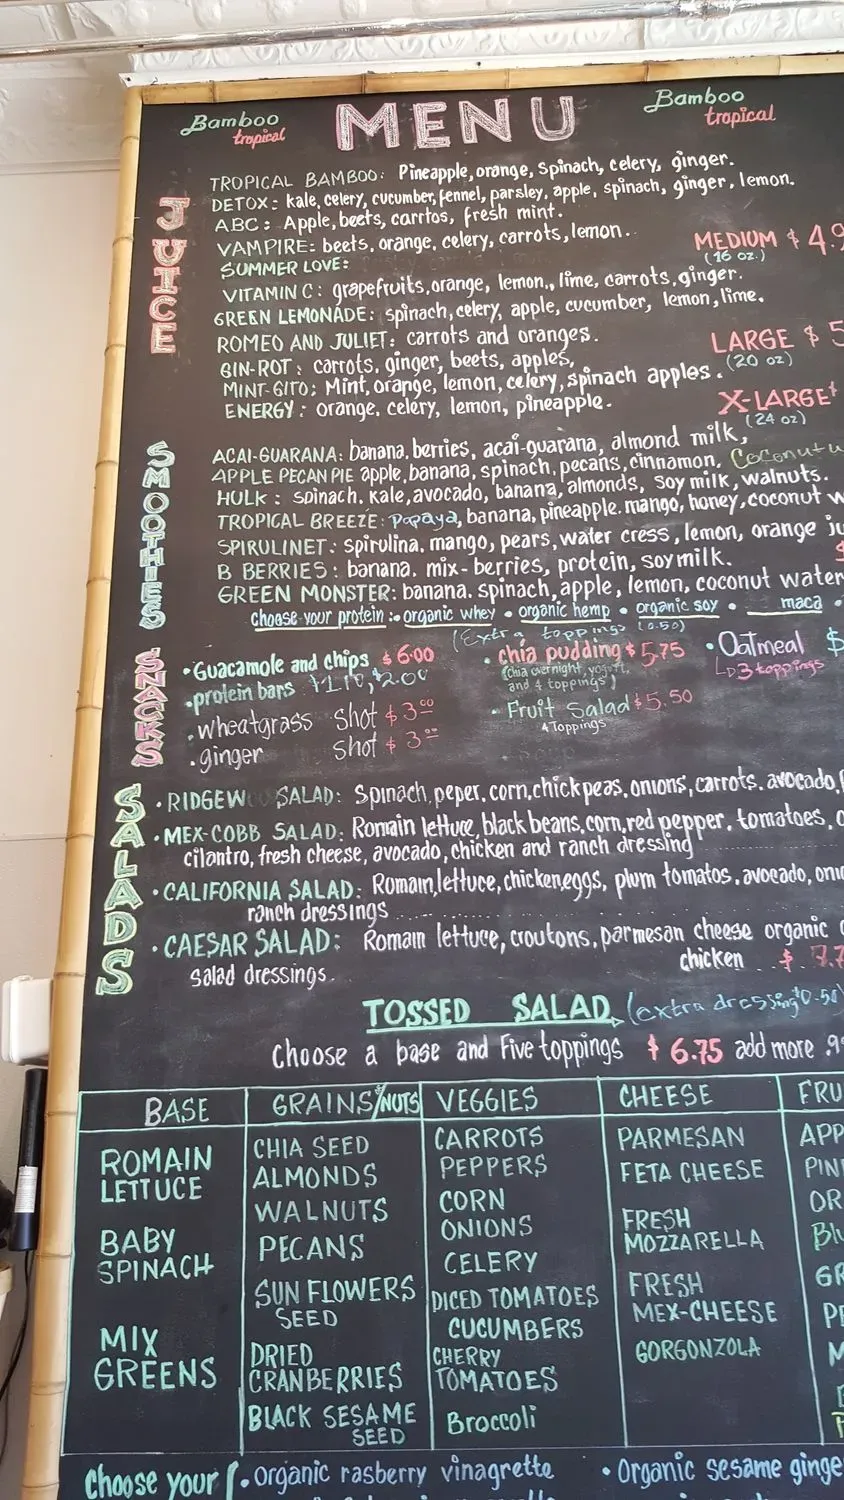 Bamboo tropical MENU Bamboo tropical
JUICE
TROPICAL BAMBOO: Pineapple, orange, spinach, celery, ginger.
DETOX: kale, celery, cucumber, fennel, parsley, apple, spinach, ginger, lemon.
ABC: Apple, beets, carrtos, fresh mint.
VAMPIRE: beets, orange, celery, carrots, lemon.
MEDIUM $ 4.9
(16 oz.)
SUMMER LOVE:
VITAMIN C: grapefruits, orange, lemon, lime, carrots, ginger.
GREEN LEMONADE: spinach, celery, apple, cucumber, lemon, lime.
ROMEO AND JULIET: carrots and oranges.
LARGE $ 5
(20 oz)
GIN-ROT: carrots, ginger, beets, apples,
MINT-GITO: Mint, orange, lemon, celery, spinach apples.
ENERGY: orange, celery, lemon, pineapple.
X-LARGE $
(24 oz)
SMOOTHIES
ACAI-GUARANA: banana, berries, acai-guarana, almond milk,
APPLE PECAN PIE apple, banana, spinach, pecans, cinnamon, Coconut
HULK: spinach, kale, avocado, banana, almonds, soy milk, walnuts.
TROPICAL BREEZE: papaya, banana, pineapple, mango, honey, coconut w
SPIRULINET: spirulina, mango, pears, water cress, lemon, orange ju
B BERRIES: banana, mix-berries, protein, soymilk.
GREEN MONSTER: banana, spinach, apple, lemon, coconut water
choose your protein: • organic whey • organic hemp • organic soy • maca •
(Extra toppings (0.50)
SNACKS
• Guacamole and chips $6.00
• protein bars $2.00
• wheatgrass shot $3.00
• ginger shot $3.00
• chia pudding $5.75
(chia overnight, yogurt, and 4 toppings)
• Fruit Salad $5.50
4 Toppings
• Oatmeal $
3 toppings
SALADS
• RIDGEW SALAD: Spinach, peper, corn, chickpeas, onions, carrots, avocado,
• MEX-COBB SALAD: Romain lettuce, black beans, corn, red pepper, tomatoes,
cilantro, fresh cheese, avocado, chicken and ranch dressing
• CALIFORNIA SALAD: Romain, lettuce, chicken, eggs, plum tomatos, avocado, oni
ranch dressings
• CAESAR SALAD: Romain lettuce, croutons, parmesan cheese organic
salad dressings. chicken .. $ 7.7
TOSSED SALAD (extra dressing $0.50)
Choose a base and Five toppings $ 6.75 add more .9
BASE GRAINS/NUTS VEGGIES CHEESE FRU
ROMAIN LETTUCE
BABY SPINACH
MIX GREENS
CHIA SEED
ALMONDS
WALNUTS
PECANS
SUN FLOWERS SEED
DRIED CRANBERRIES
BLACK SESAME SEED
CARROTS
PEPPERS
CORN
ONIONS
CELERY
DICED TOMATOES
CUCUMBERS
CHERRY TOMATOES
Broccoli
PARMESAN
FETA CHEESE
FRESH MOZZARELLA
FRESH MEX-CHEESE
GORGONZOLA
APP
PIN
OR
Blu
GR
PE
M
Choose your • Organic rasberry vinagrette • Organic sesame ginge